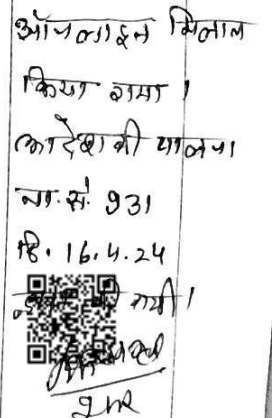 ऑनलाइन मिलान
किया गया।
आदेश की पालना
ना.सं. 931
दि. 16.4.24
की गयी।